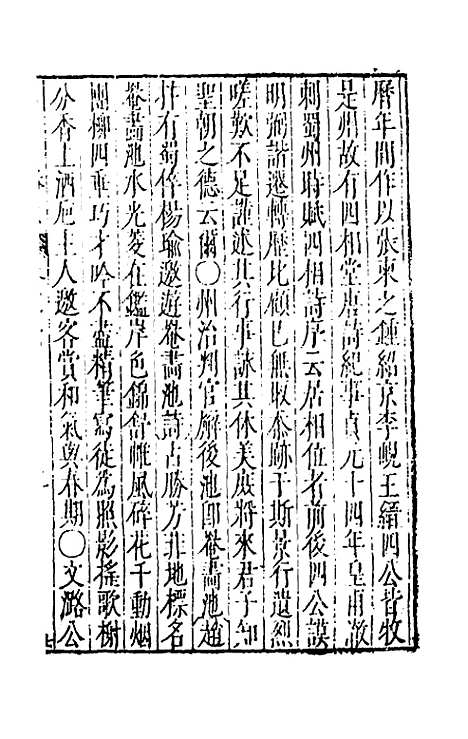 曆年間作以張柬之鍾紹京李峴王縉四公皆牧
是州故有四相堂唐詩紀事貞元十四年皇甫澈
刺蜀州時賦四相詩序云居相位者前後四公謨
明弼諧遷轉歷比顧已無取忝跡于斯景行遺烈
嗟歎不足謹述其行事詠其休美庶將來君子知
聖朝之德云爾〇州治判官廨後池卽菴畵池趙
抃有蜀倅楊瑜邀遊菴畵池詩占勝芳菲地標名
菴畵池水光菱在鑑岸色錦舒帷風碎花千動烟
團柳四垂巧才吟不盡精筆寫徒爲照影搖歌榭
分香上酒巵主人邀客賞和氣與春期〇文潞公